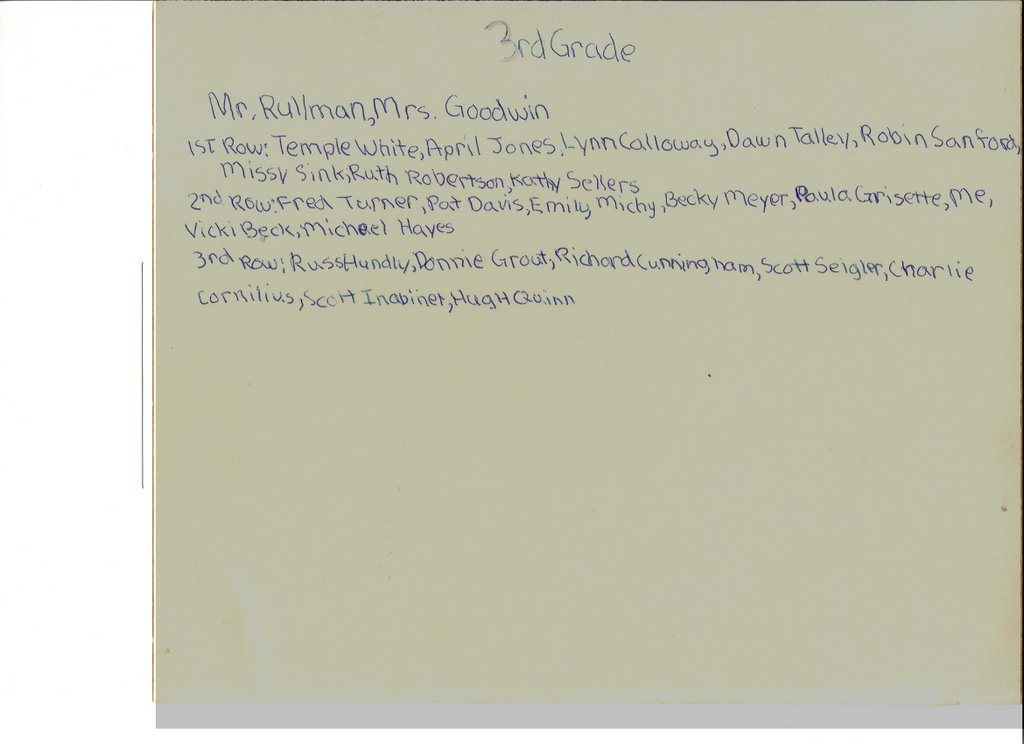 3rd Grade
Mr. Rullman, Mrs. Goodwin
1ST Row: Temple White, April Jones, Lynn Calloway, Dawn Talley, Robin Sanford,
Missy Sink, Ruth Robertson, Kathy Sellers
2nd Row: Fred Turner, Pat Davis, Emily Michy, Becky Meyer, Paula Grisette, Me,
Vicki Beck, Micheel Hayes
3rd Row: Russ Hundly, Donnie Grout, Richard Cunningham, Scott Seigler, Charlie
Cornilius, Scott Inabinet, Hugh Quinn